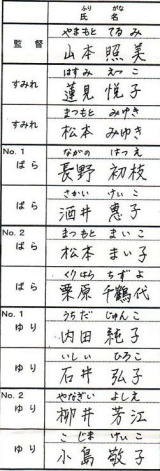 ふり がな
氏 名
やまもと てるみ
監 督 山本 照美
はすみ えつこ
すみれ 蓮見 悦子
まつもと みゆき
すみれ 松本 みゆき
No. 1 ながの はつえ
ばら 長野 初枝
さかい けいこ
ばら 酒井 恵子
No. 2 まつもと まいこ
ばら 松本 まい子
くりはら ちずよ
ばら 栗原 千鶴代
No. 1 うちだ じゅんこ
ゆり 内田 純子
いしい ひろこ
ゆり 石井 弘子
No. 2 やなぎい よしえ
ゆり 柳井 芳江
こじま けいこ
ゆり 小島 敬子